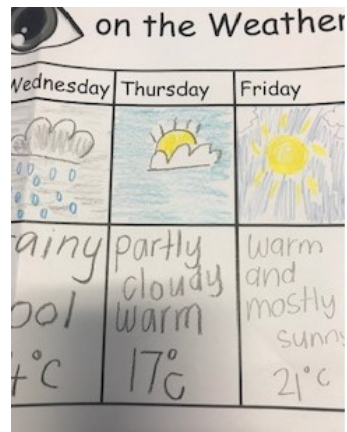 on the Weather
Wednesday Thursday Friday
rainy
cool
4°C
partly
cloudy
warm
17°C
warm
and
mostly
sunny
21°C